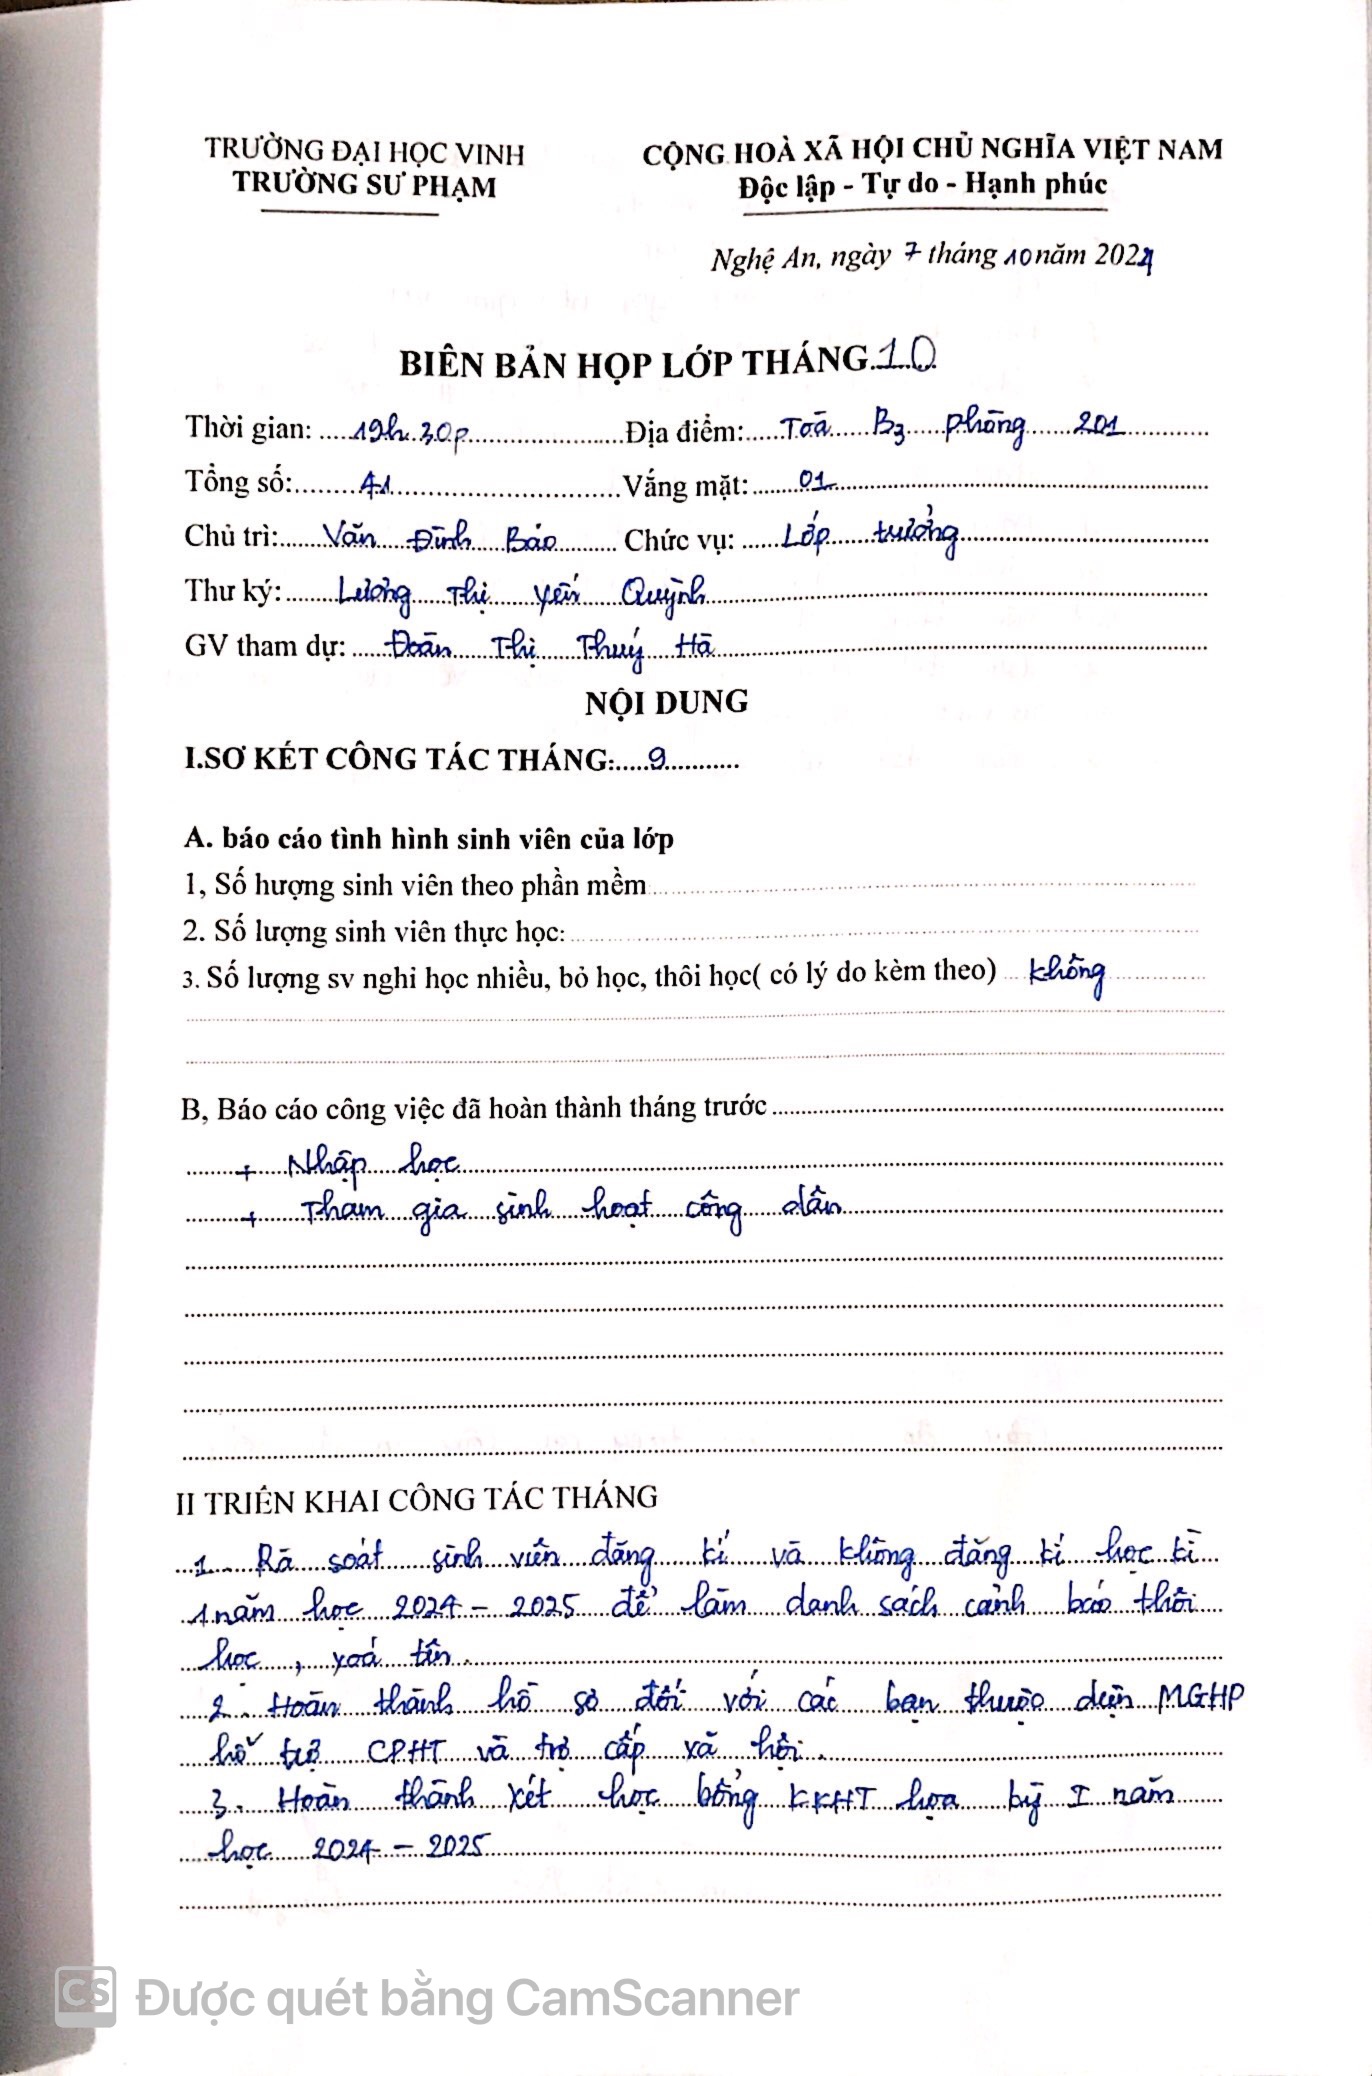 TRƯỜNG ĐẠI HỌC VINH
TRƯỜNG SƯ PHẠM
CỘNG HOÀ XÃ HỘI CHỦ NGHĨA VIỆT NAM
Độc lập - Tự do - Hạnh phúc
Nghệ An, ngày 7 tháng 10 năm 2024
BIÊN BẢN HỌP LỚP THÁNG 10
Thời gian: 19h 30p Địa điểm: Toà B3 phòng 201
Tổng số: 41 Vắng mặt: 01
Chủ trì: Văn Đình Bảo Chức vụ: Lớp trưởng
Thư ký: Lương Thị Yến Quỳnh
GV tham dự: Đoàn Thị Thuý Hà
NỘI DUNG
I.SƠ KẾT CÔNG TÁC THÁNG: 9
A. báo cáo tình hình sinh viên của lớp
1, Số hượng sinh viên theo phần mềm
2. Số lượng sinh viên thực học:
3. Số lượng sv nghỉ học nhiều, bỏ học, thôi học( có lý do kèm theo) không
B, Báo cáo công việc đã hoàn thành tháng trước
+ Nhập học
+ Tham gia sinh hoạt công dân
II TRIỂN KHAI CÔNG TÁC THÁNG
1. Rà soát sinh viên đăng kí và không đăng kí học kì
1 năm học 2024 - 2025 để làm danh sách cảnh báo thôi
học, xoá tên.
2. Hoàn thành hồ sơ đối với các bạn thuộc diện MGHP
hỗ trợ CPHT và trợ cấp xã hội.
3. Hoàn thành xét học bổng KKHT họa kỳ I năm
học 2024 - 2025
CS Được quét bằng CamScanner